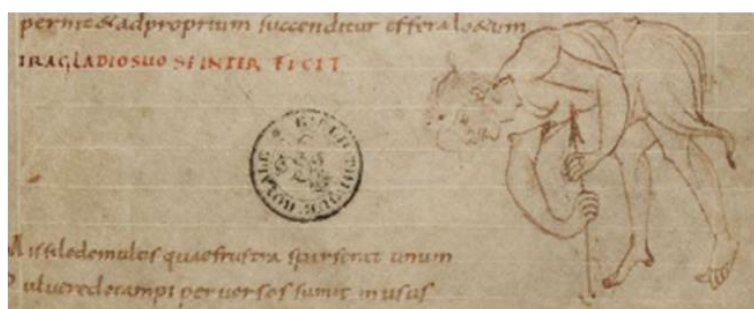 pernit&adproprium succenditur effera loetum
IRAGLADIOSUO SE INTER FICIT
BIBLIOTHEQUE ROYALE
Missiledemultis quaefrustra sparserat unum
Pulveredecampi perversos sumit inusus